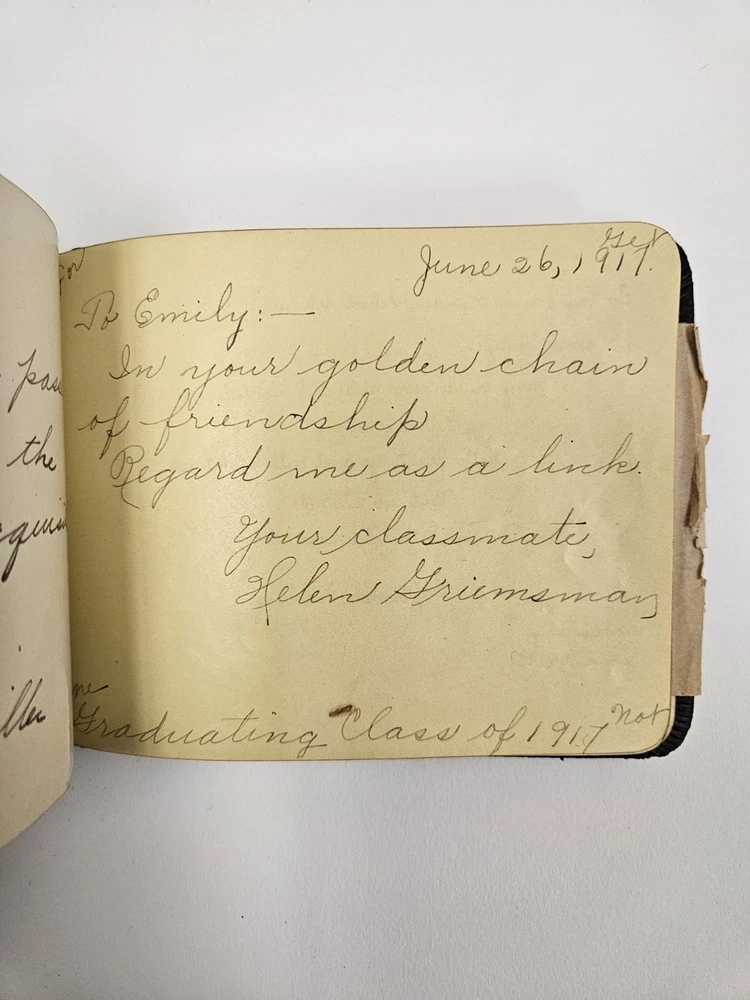 For
Get
June 26, 1917.
To Emily:—
In your golden chain
of friendship
Regard me as a link.
Your classmate,
Helen Griemsman
me
Graduating Class of 1917
not
the